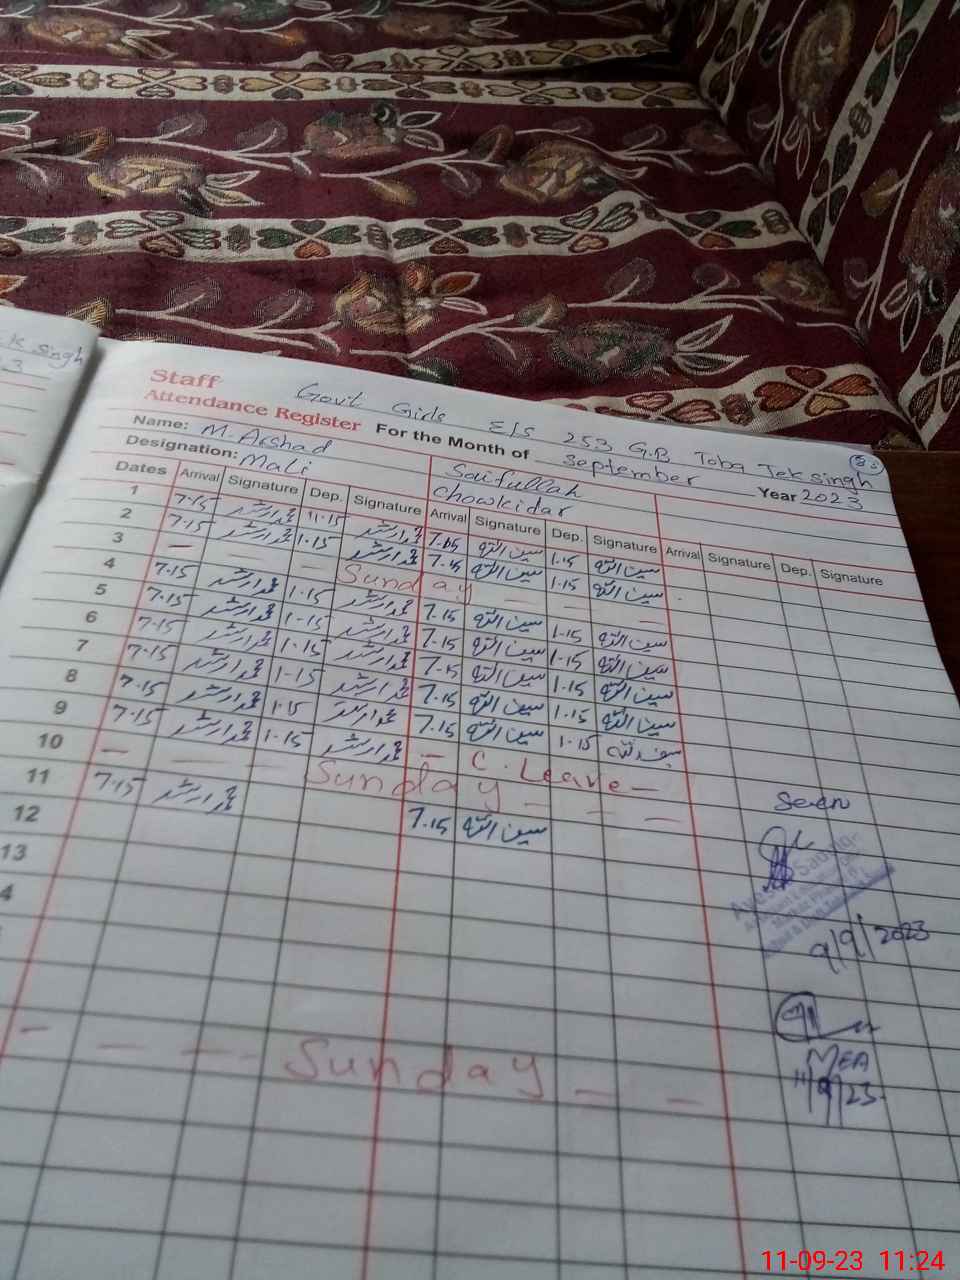 K Singh
Govt Girls E/S 253 G.B Toba Tek singh
Staff
Attendance Register For the Month of September Year 2023
Name: M. Arshad Saifullah
Designation: Mali Chowkidar
Dates Arrival Signature Dep. Signature Arrival Signature Dep. Signature Arrival Signature Dep. Signature
1 7.15 محمد ارشد 11-15 محمد ارشد 7.15 سیف اللہ 1.15 سیف اللہ
2 7.15 محمد ارشد 1.15 محمد ارشد 7.15 سیف اللہ 1.15 سیف اللہ
3 — — — Sunday — — —
4 7.15 محمد ارشد 1.15 محمد ارشد 7.15 سیف اللہ 1.15 سیف اللہ
5 7.15 محمد ارشد 1-15 محمد ارشد 7.15 سیف اللہ 1.15 سیف اللہ
6 7.15 محمد ارشد 1.15 محمد ارشد 7.15 سیف اللہ 1.15 سیف اللہ
7 7.15 محمد ارشد 1-15 محمد ارشد 7.15 سیف اللہ 1.15 سیف اللہ
8 7.15 محمد ارشد 1.15 محمد ارشد 7.15 سیف اللہ 1.15 سیف اللہ
9 7.15 محمد ارشد 1.15 محمد ارشد — C. Leave —
10 — — — Sunday — — —
11 7.15 محمد ارشد 7.15 سیف اللہ
12
13
4
Seen
9/9/2023
MEA
11/9/23
— — — Sunday — —
11-09-23 11:24